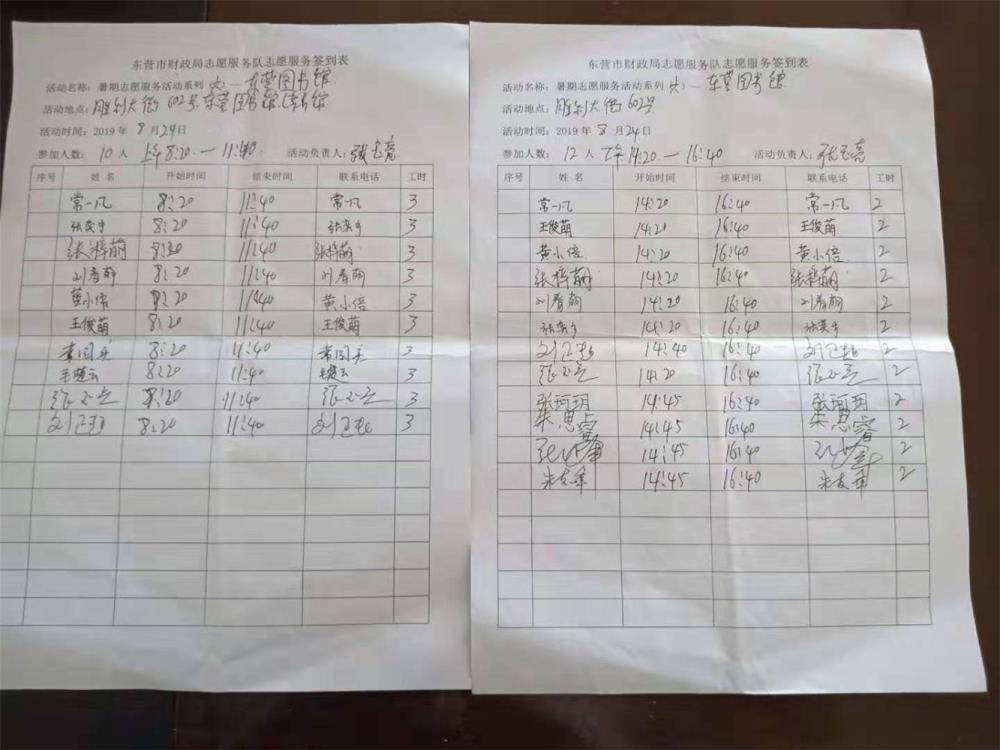 东营市财政局志愿服务队志愿服务签到表
活动名称：暑期志愿服务活动系列(六)—东营图书馆
活动地点：胜利大街602号东营图书馆借书馆
活动时间：2019年8月24日
参加人数：10人 上午8:20—11:40 活动负责人：张玉亮
序号 姓名 开始时间 结束时间 联系电话 工时
常一凡 8:20 11:40 常一凡 3
8:20 11:40 3
张梓萌 8:20 11:40 张梓萌 3
刘春萌 8:20 11:40 刘春萌 3
黄小倍 8:20 11:40 黄小倍 3
王俊萌 8:20 11:40 王俊萌 3
8:20 11:40 3
8:20 11:40 3
8:20 11:40 3
8:20 11:40 3
东营市财政局志愿服务队志愿服务签到表
活动名称：暑期志愿服务活动系列(六)—东营图书馆
活动地点：胜利大街602号
活动时间：2019年8月24日
参加人数：12人 下午14:20—16:40 活动负责人：张玉亮
序号 姓名 开始时间 结束时间 联系电话 工时
常一凡 14:20 16:40 常一凡 2
王俊萌 14:20 16:40 王俊萌 2
黄小倍 14:20 16:40 黄小倍 2
张梓萌 14:20 16:40 张梓萌 2
刘春萌 14:20 16:40 刘春萌 2
14:20 16:40 2
14:40 16:40 2
14:20 16:40 2
张珂玥 14:45 16:40 张珂玥 2
朱思睿 14:45 16:40 朱思睿 2
14:45 16:40 2
朱友军 14:45 16:40 朱友军 2